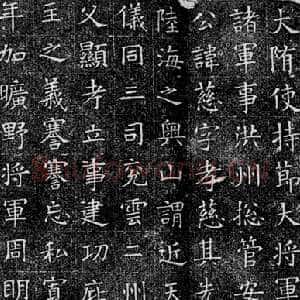 大隋使持節大將
諸軍事洪州揔管安
公諱慈字孝慈其先
陸海之奥山謂近天
儀同三司兖雲二州
父顯考立事建功庇
主之義謇謇忘私賓
年加曠野將軍周明